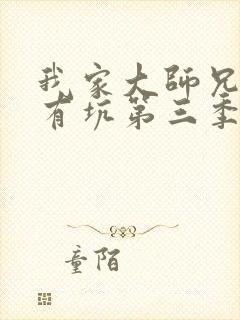 我家大師兄
有坑第三季
童陌